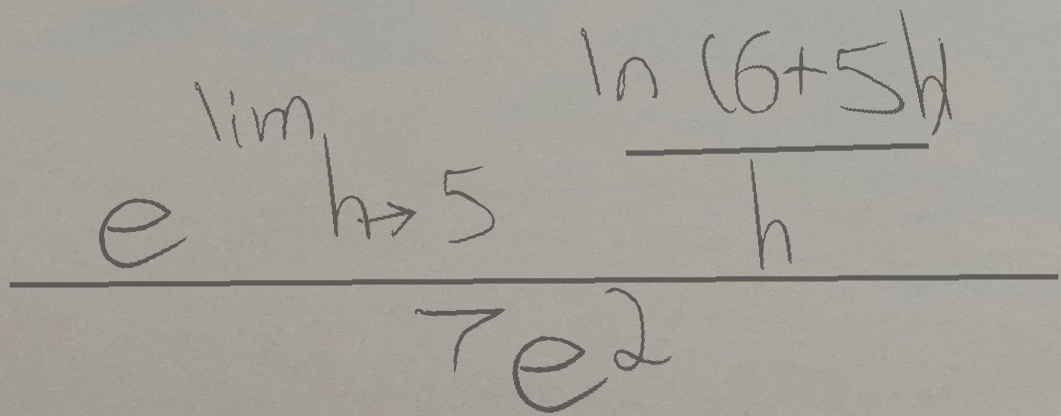 e^{\lim_{h \to 5} \frac{\ln (6+5h)}{h}}
7e^2